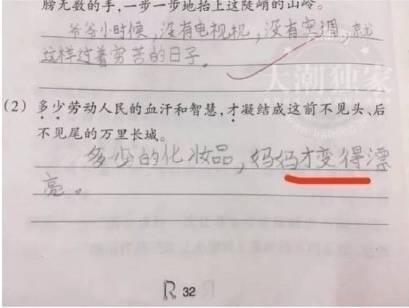 膀无数的手，一步一步地抬上这陡峭的山岭。
爷爷小时候，没有电视机，没有空调，就
这样过着穷苦的日子。
天潮独家
(2) 多少劳动人民的血汗和智慧，才凝结成这前不见头、后
不见尾的万里长城。
多少的化妆品，妈妈才变得漂
亮。
R 32